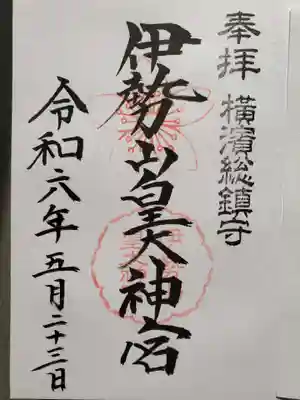 奉拝 横濱総鎮守
伊勢山皇大神宮
令和六年五月二十三日